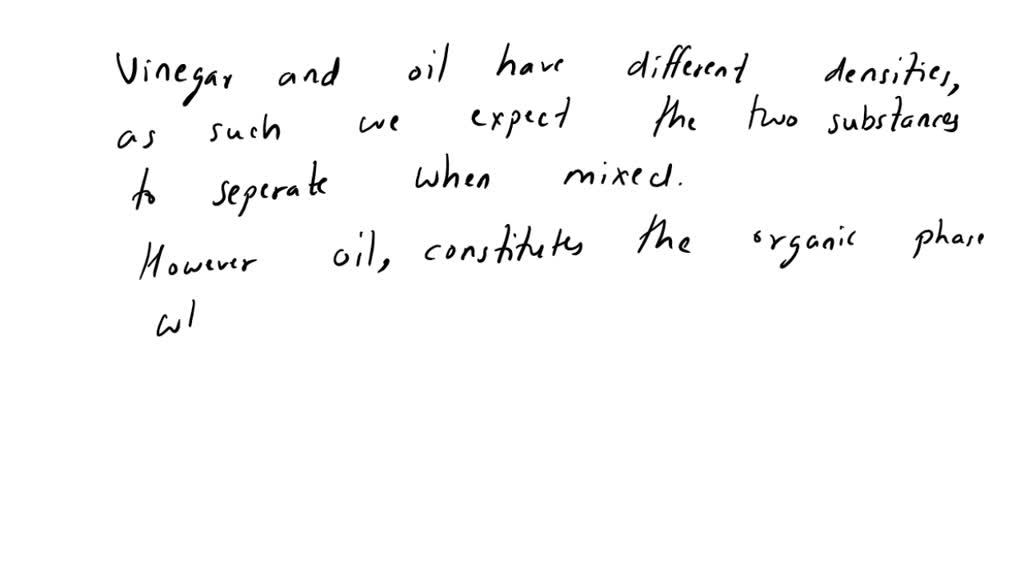 Vinegar and oil have different densities,
as such we expect the two substances
to seperate when mixed.
However oil, constitutes the organic phase
wh